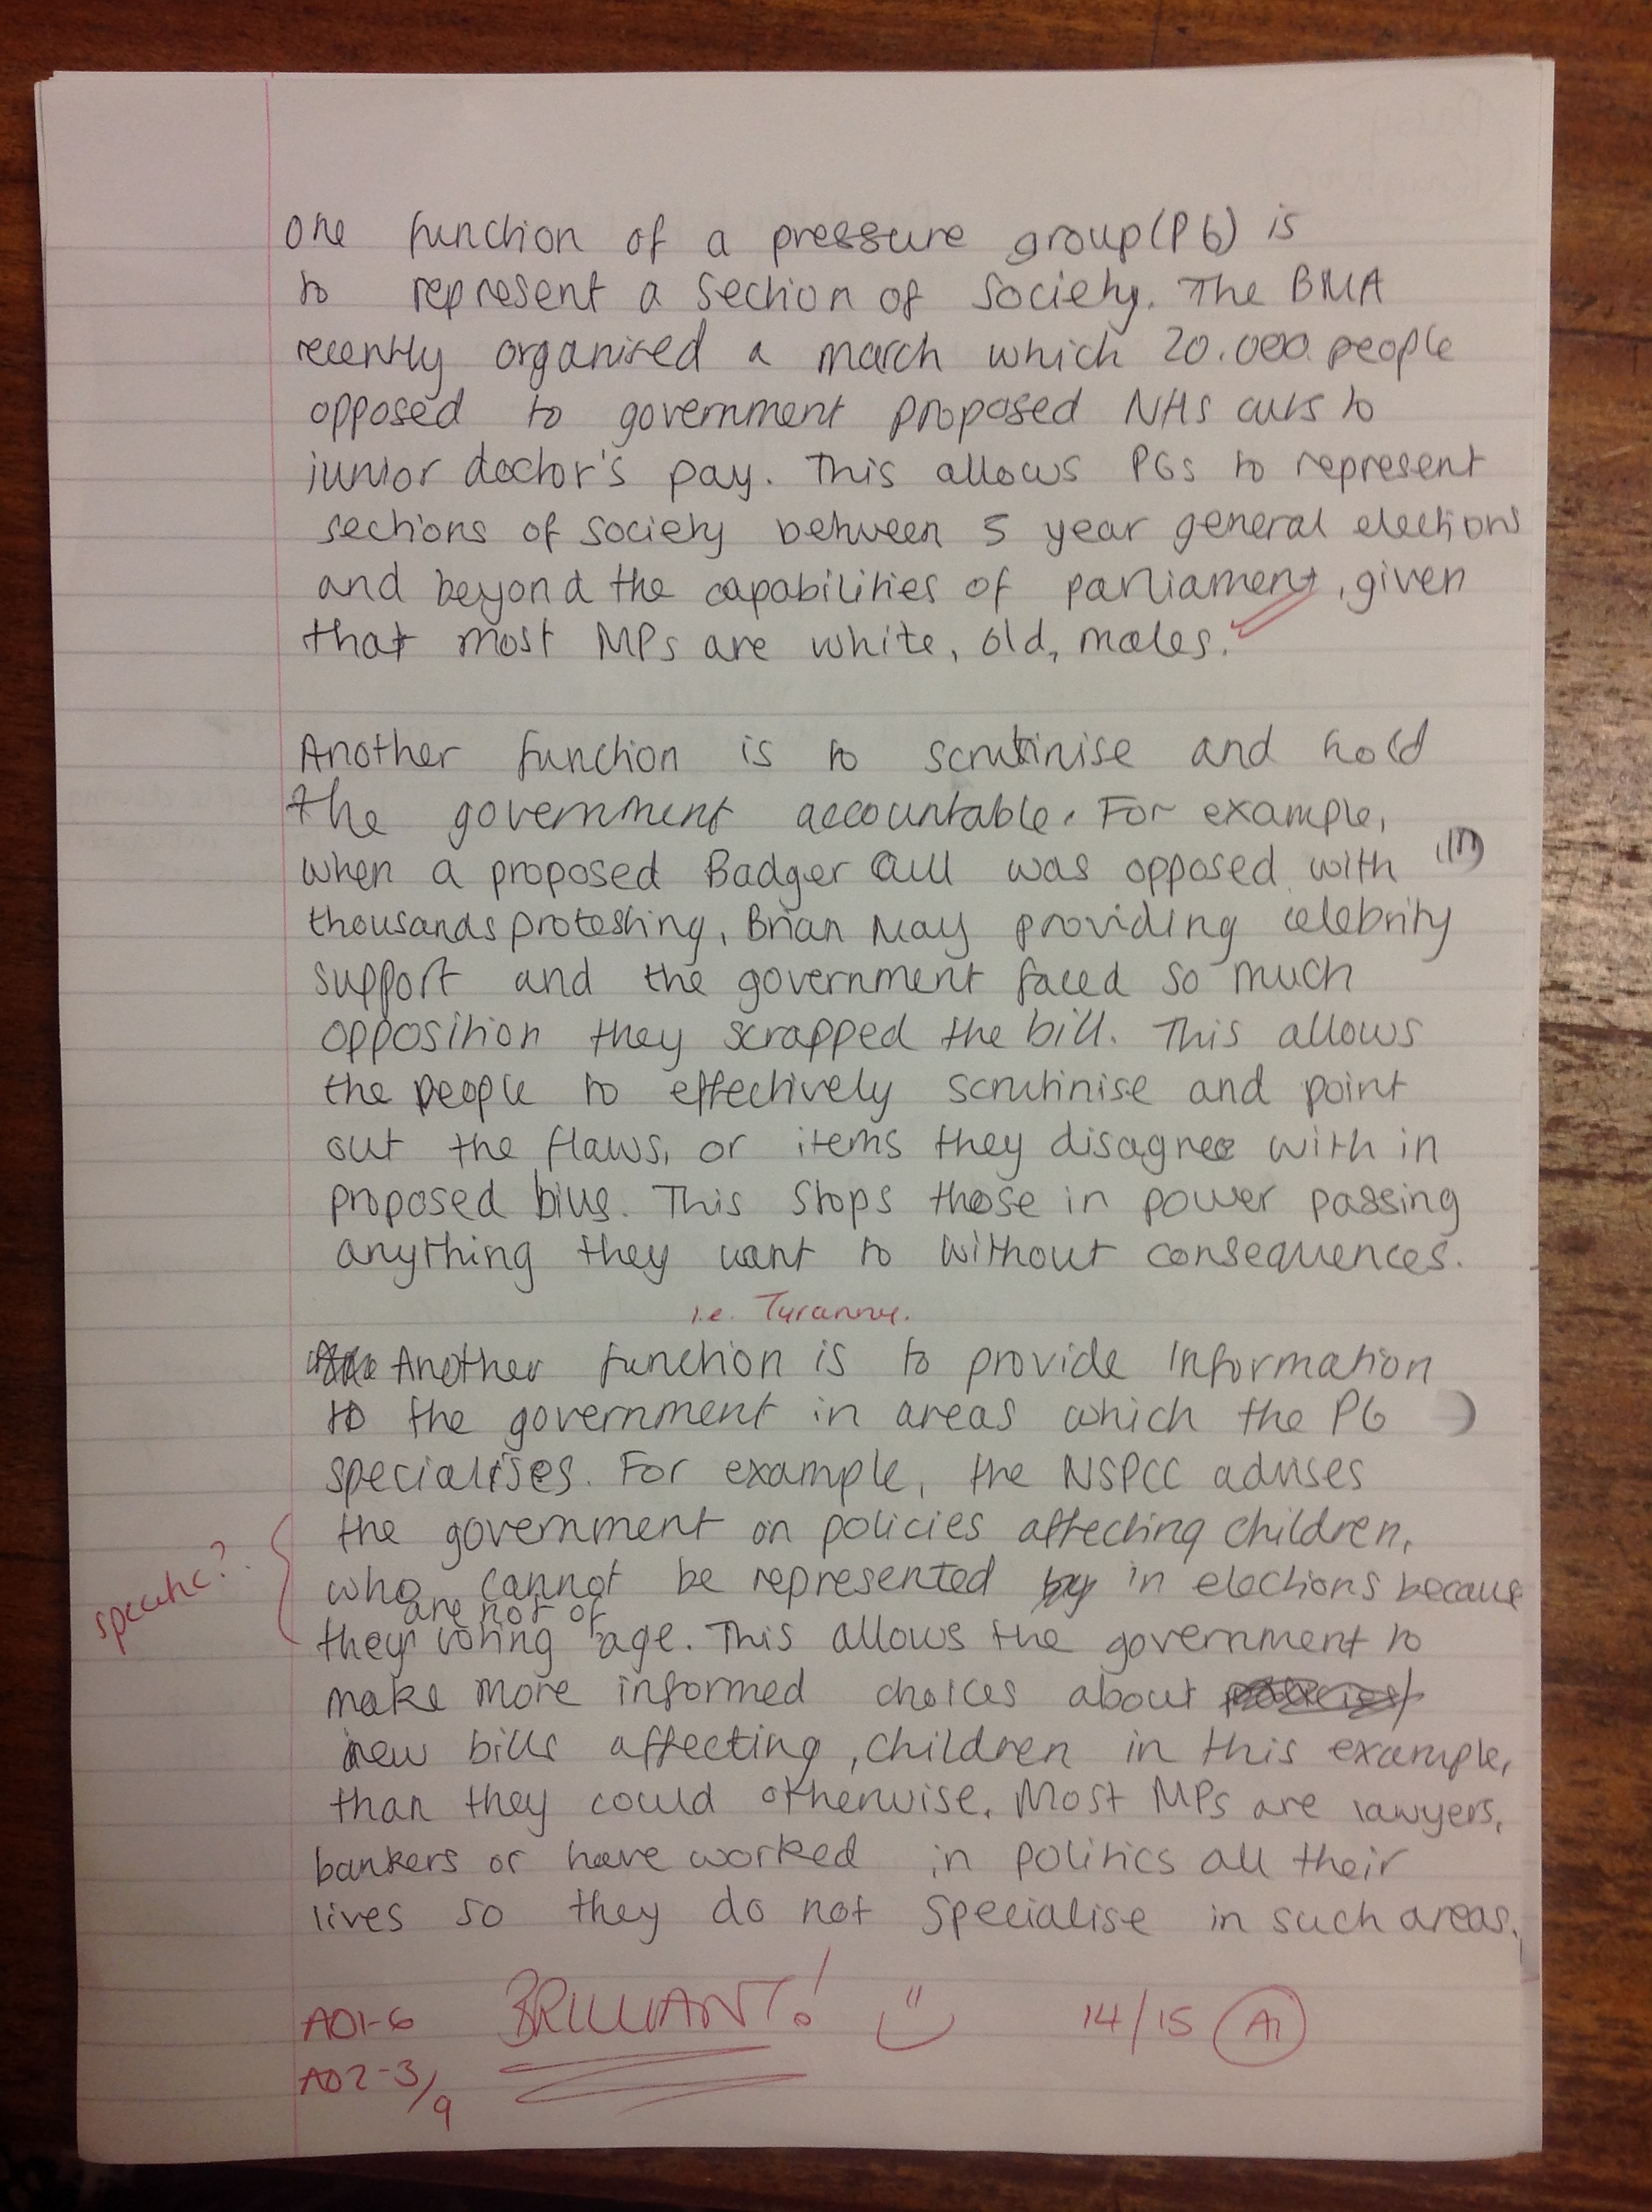 one function of a pressure group(PG) is
to represent a section of society. The BMA
recently organised a march which 20.000 people
opposed to government proposed NHS cuts to
junior doctor's pay. This allows PGs to represent
sections of society between 5 year general elections
and beyond the capabilities of parliament, given
that most MPs are white, old, males.
Another function is to scrutinise and hold
the government accountable. For example,
when a proposed Badger Cull was opposed with
thousands protesting, Brian May providing celebrity
support and the government faced so much
opposition they scrapped the bill. This allows
the people to effectively scrutinise and point
out the flaws, or items they disagree with in
proposed bills. This stops those in power passing
anything they want to without consequences.
i.e. Tyranny.
Another function is to provide information
to the government in areas which the PG
specialises. For example, the NSPCC advises
the government on policies affecting children,
who cannot be represented in elections because
specific?
they are not of voting age. This allows the government to
make more informed choices about
new bills affecting, children in this example,
than they could otherwise. Most MPs are lawyers,
bankers or have worked in politics all their
lives so they do not specialise in such areas.
AO1-6 BRILLIANT! 14/15 A1
AO2-3/9